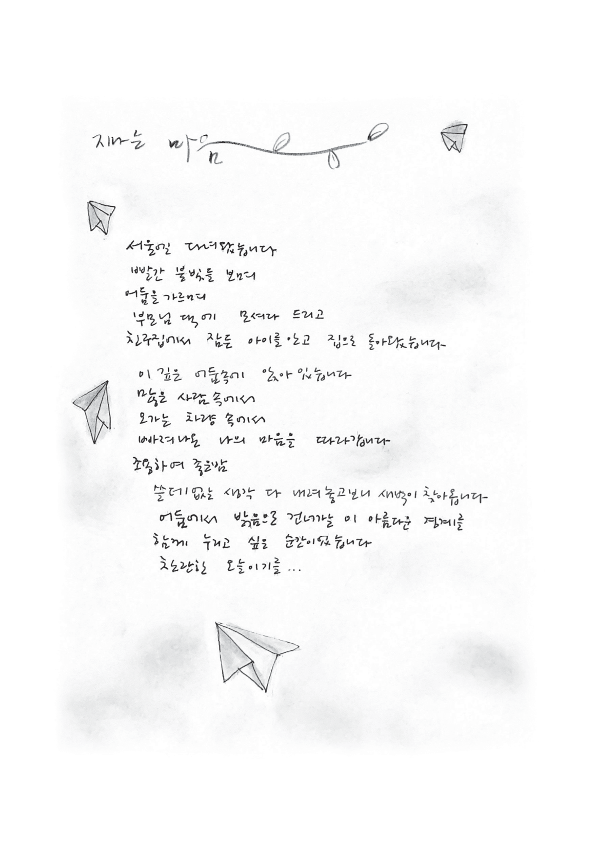 지나는 마음
서울엘 다녀왔습니다
빠알간 불빛들 보며
어둠을 가르며
부모님 댁에 모셔다 드리고
친구집에서 잠든 아이를 안고 집으로 돌아왔습니다
이 깊은 어둠속에 앉아 있습니다
많은 사람 속에서
오가는 차량 속에서
빠져나온 나의 마음을 따라갑니다
조용하여 좋은밤
쓸데없는 생각 다 내려놓고보니 새벽이 찾아옵니다
어둠에서 밝음으로 건너가는 이 아름다운 경계를
함께 누리고 싶은 순간이었습니다
찬란한 오늘이기를...